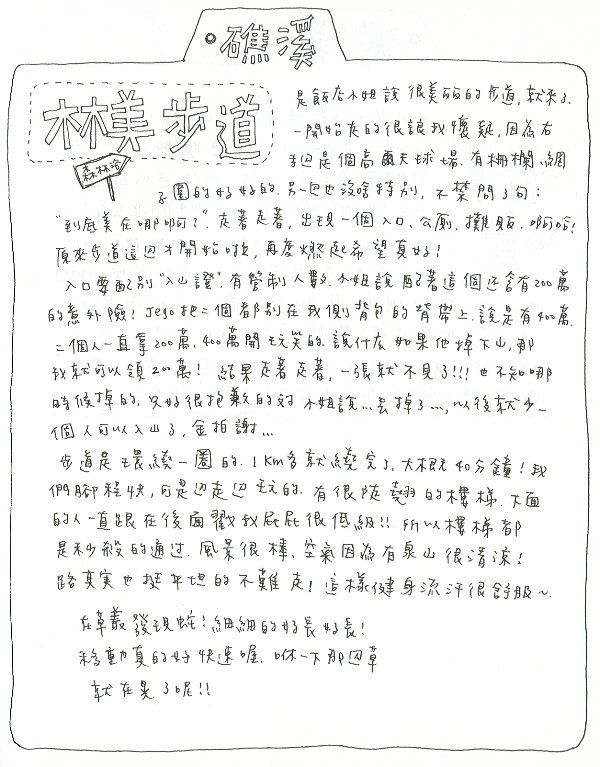 礁溪
林美步道
森林浴
是飯店小姐說很美麗的步道,就來了.
一開始走的很讓我懷疑,因為右
手邊是個高爾夫球場.有柵欄.網
子圍的好好的.另一邊也沒啥特別,不禁問了句:
"到底美在哪啊?".走著走著,出現一個入口、公廁、攤販,啊哈!
原來步道這邊才開始啦,再度燃起希望真好!
入口要配別"入山證".有管制人數.小姐說配著這個还含有200萬
的意外險!Jego把二個都別在我側背包的背帶上.說是有400萬.
二個人一直拿200萬.400萬開玩笑的.說什么如果他掉下山,那
我就可以領200萬!結果走著走著,一張就不見了!!!也不知哪
時候掉的.只好很抱歉的对小姐說...丟掉了...,以後就少一
個人可以入山了,金拍謝...
步道是環繞一圈的.1Km多就繞完了,大概40分鐘!我
們腳程快,可是边走边玩的.有很陡翹的樓梯.下面
的人一直跟在後面戳我屁屁很低級!!所以樓梯都
是秒殺的通过.風景很棒、空氣因為有泉山很清涼!
路其实也挺平坦的不難走!這樣健身流汗很舒服~
在草叢發現蛇!細細的好長好長!
移動真的好快速喔.咻一下那边草
就在晃了呢!!